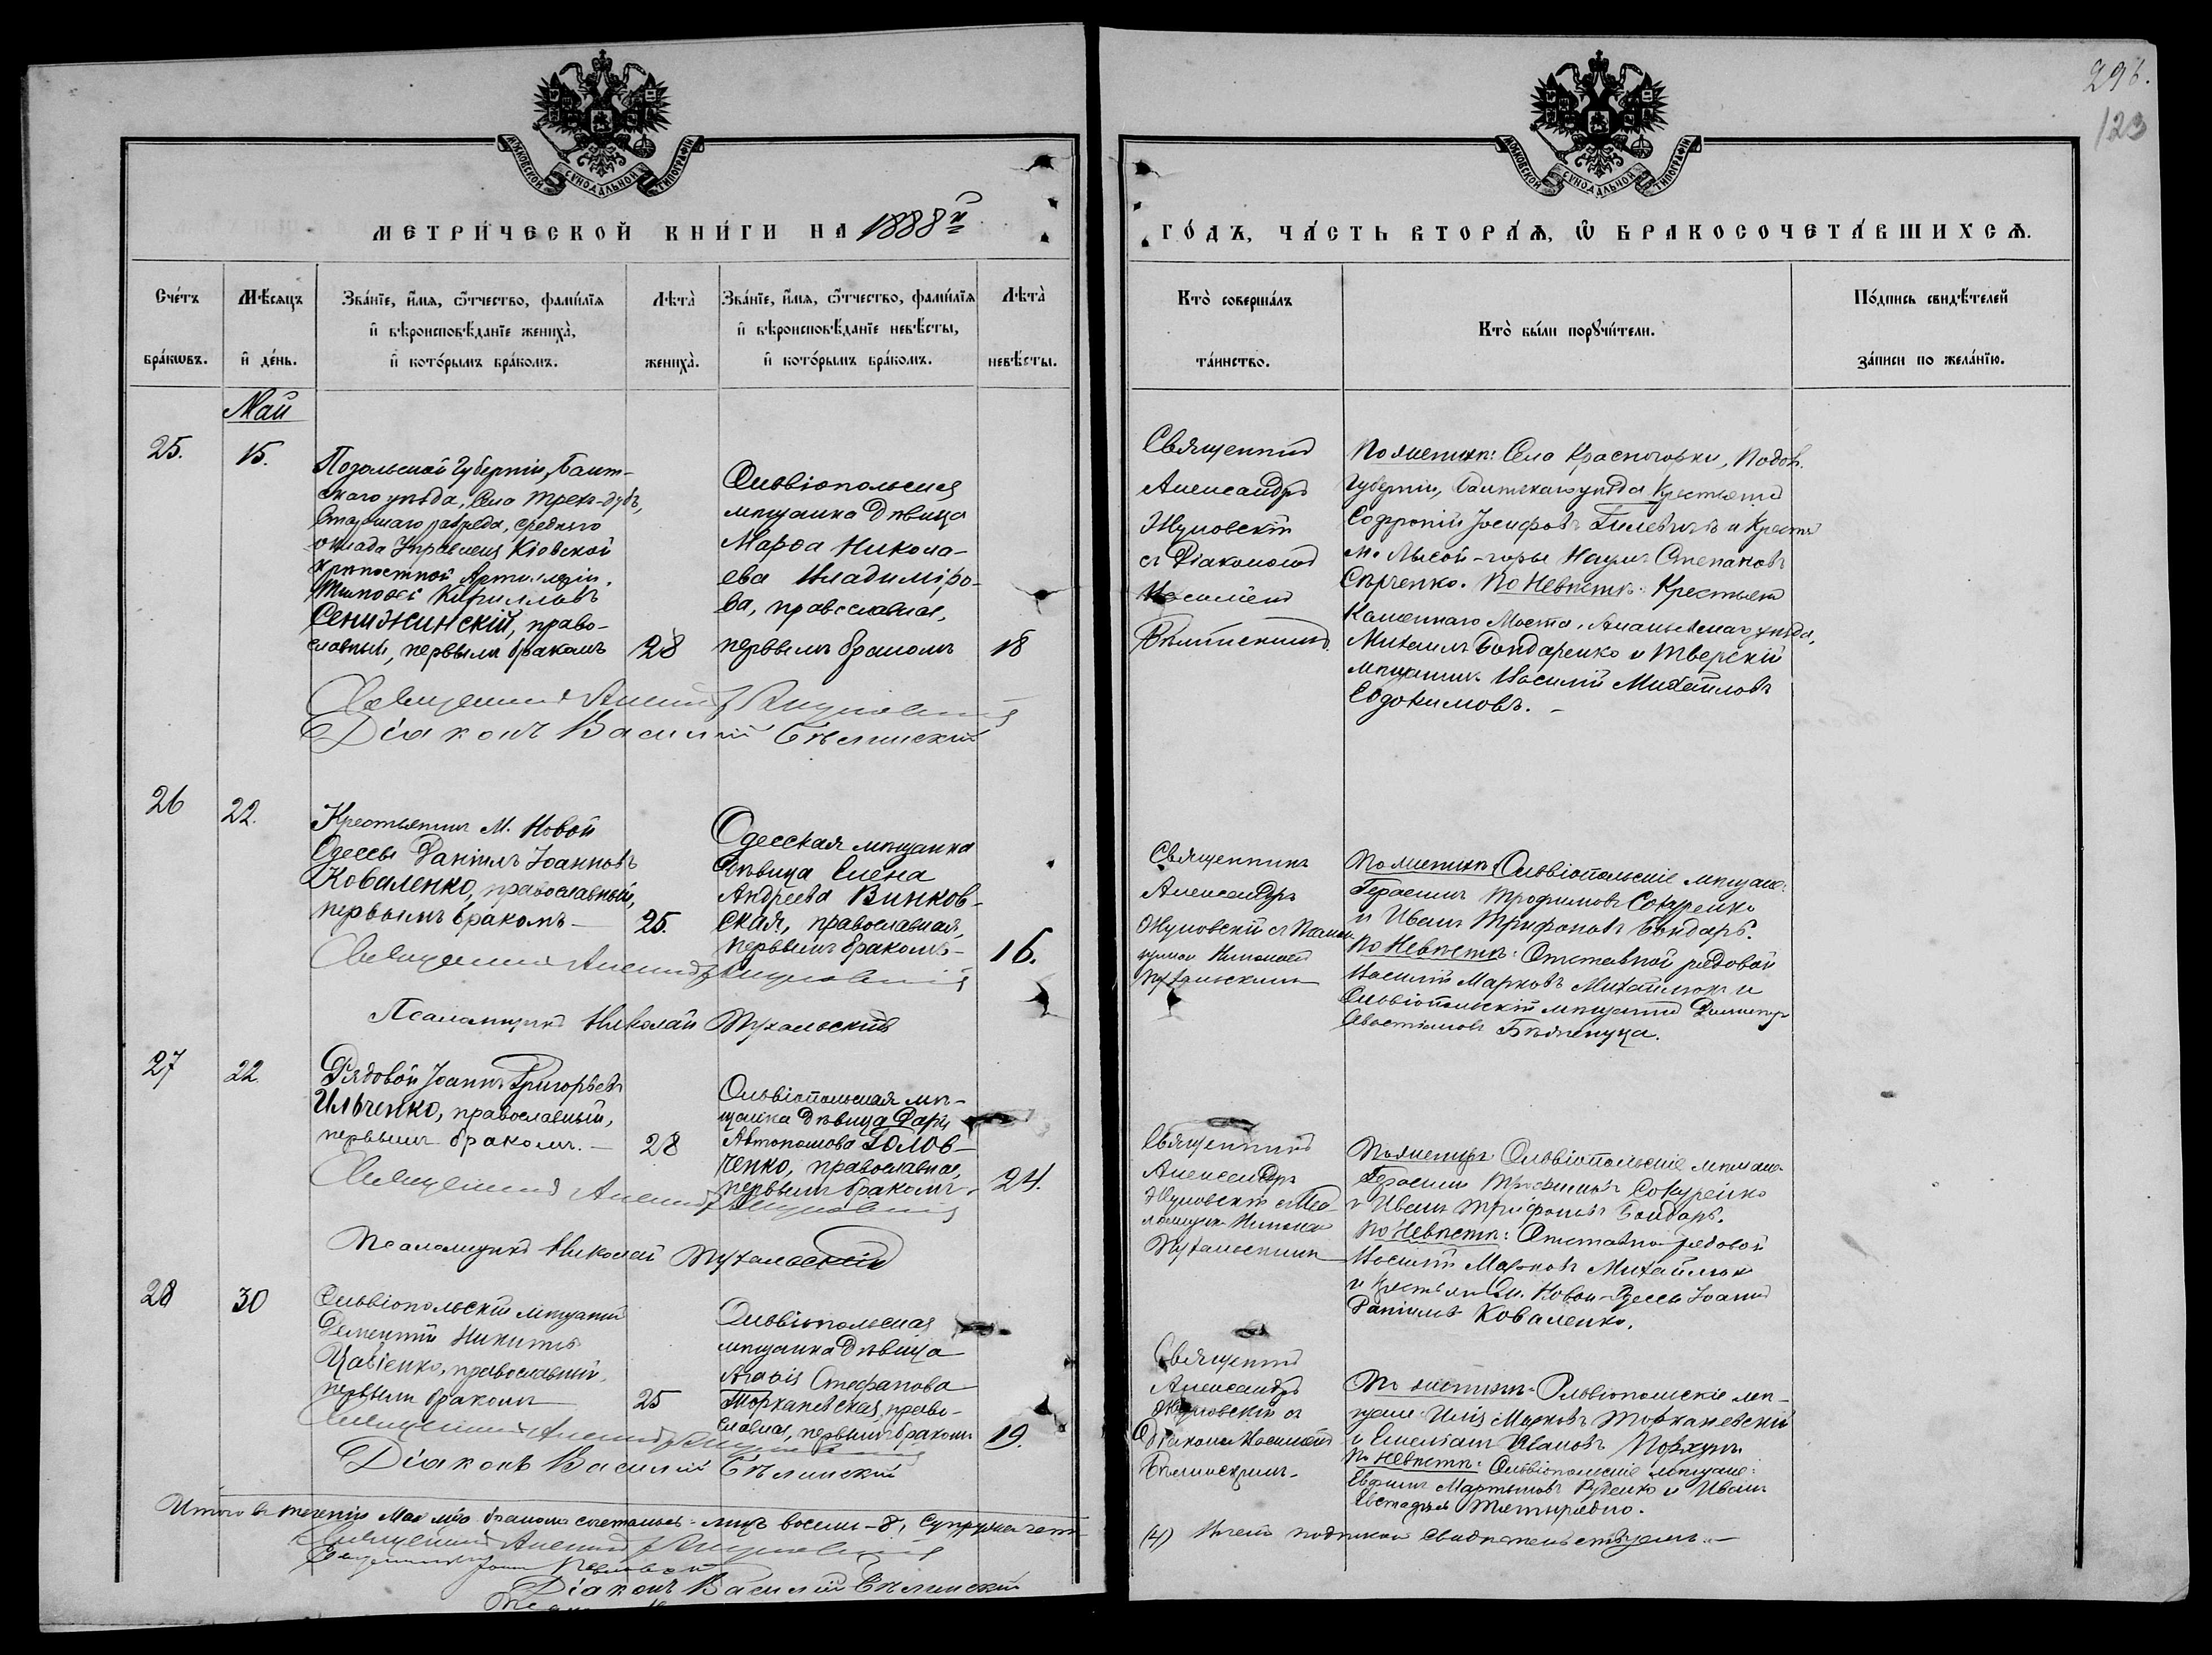 296.
123
МОСКОВСКОЙ СѴНОДАЛЬНОЙ ТИПОГРАФІИ
МОСКОВСКОЙ СѴНОДАЛЬНОЙ ТИПОГРАФІИ
МЕТРИ́ЧЕСКОЙ КНИ́ГИ НА 1888й
ГО́ДЪ, ЧА́СТЬ ВТОРА́Ѧ, Ѽ БРАКОСОЧЕТА́ВШИХСѦ.
Счётъ бра́кѡвъ.
Мѣ́сѧцъ и҆ де́нь.
Зва́нїе, и҆́мѧ, ѻ҆́тчество, фами́лїѧ
и҆ вѣроисповѣ́данїе жениха̀,
и҆ кото́рымъ бра́комъ.
Лѣта̀ жениха̀.
Зва́нїе, и҆́мѧ, ѻ҆́тчество, фами́лїѧ
и҆ вѣроисповѣ́данїе невѣ́сты,
и҆ кото́рымъ бра́комъ.
Лѣта̀ невѣ́сты.
Кто̀ соверша́лъ
та́инство.
Кто̀ бы́ли порꙋчи́тели.
По́дпись свидѣ́телей
за́писи по жела́нїю.
Май
25.
15.
Подольской Губерніи, Балт-
скаго уѣзда, Села Трех-дубъ,
Старшаго разряда, средняго
оклада Управленія Кіевской
крѣпостной Артиллеріи,
Тимоѳей Кирилловъ
Сенижинскій, право-
славный, первымъ бракомъ
28
Ольвіопольская
мѣщанка дѣвица
Марѳа Никола-
ева Владиміро-
ва, православная,
первымъ бракомъ
18
Священникъ
Александръ
Жуковскій
съ Діакономъ
Василіемъ
Бѣлинскимъ.
По женихѣ: Села Красногорки, Подол.
Губерніи, Балтскаго уѣзда Крестьянинъ
Софроній Іосифовъ Гилевичъ и Крест.
м. Лысой-горы Наумъ Степановъ
Сѣрченко. По Невѣстѣ: Крестьян.
Каменнаго Моста, Ананьевскаго уѣзда,
Михаилъ Бондаренко и Тверскій
мѣщанинъ Василій Михайловъ
Евдокимовъ.
Священникъ Александръ Жуковскій
Діаконъ Василій Бѣлинскій
26
22.
Крестьянинъ М. Новой
Одессы Даніилъ Іоанновъ
Коваленко, православный,
первымъ бракомъ —
25.
Одесская мѣщанка
дѣвица Елена
Андреева Винков-
ская, православная,
первымъ бракомъ-
16.
Священникъ
Александръ
Жуковскій съ Псалом-
щикомъ Николаемъ
Тухальскимъ
По женихѣ: Ольвіопольскіе мѣщане:
Герасимъ Трофимовъ Сокуренко
и Иванъ Трифоновъ Бондарь.
По Невѣстѣ: Отставной рядовой
Василій Марковъ Михайлюкъ и
Ольвіопольскій мѣщанинъ
Священникъ Александръ Жуковскій
Псаломщикъ Николай Тухальскій
27
22
Рядовой Іоаннъ Григорьевъ
Ильченко, православный,
первымъ бракомъ. —
28
Ольвіопольская мѣ-
щанка дѣвица Дарія
Автономова Голов-
ченко, православная,
первымъ бракомъ.
24.
Священникъ
Александръ
Жуковскій съ Пса-
ломщик. Николаемъ
Тухальскимъ
По женихѣ: Ольвіопольскіе мѣщане
Герасимъ Трофимовъ Сокуренко
и Иванъ Трифоновъ Бондарь.
По Невѣстѣ: Отставной рядовой
Василій Марковъ Михайлюкъ
и Крестьянинъ м. Новой-Одессы Іоаннъ
Даніилъ Коваленко.
Священникъ Александръ Жуковскій
Псаломщикъ Николай Тухальскій
28
30
Ольвіопольскій мѣщанинъ
Дементій Никитинъ
Цавіенко, православный,
первымъ бракомъ
25
Ольвіопольская
мѣщанка дѣвица
Стефанова
Торкановская, право-
славная, первымъ бракомъ
19.
Священникъ
Александръ
Жуковскій съ
Діакономъ Василіемъ
Бѣлинскимъ.
По женихѣ: Ольвіопольскіе мѣ-
щане: Илія Марковъ Торкановскій
и Емеліанъ Ивановъ
По Невѣстѣ: Ольвіопольскіе мѣщане:
Евфимъ Мартыновъ Руденко и Иванъ
Священникъ Александръ Жуковскій
Діаконъ Василій Бѣлинскій
Итого въ теченіи Мая м-ца бракомъ сочеталось лицъ восемь-8, супружествъ
(4) Въ чемъ подписомъ свидѣтельствуемъ. —
Священникъ Александръ Жуковскій
Священникъ Іоаннъ
Діаконъ Василій Бѣлинскій